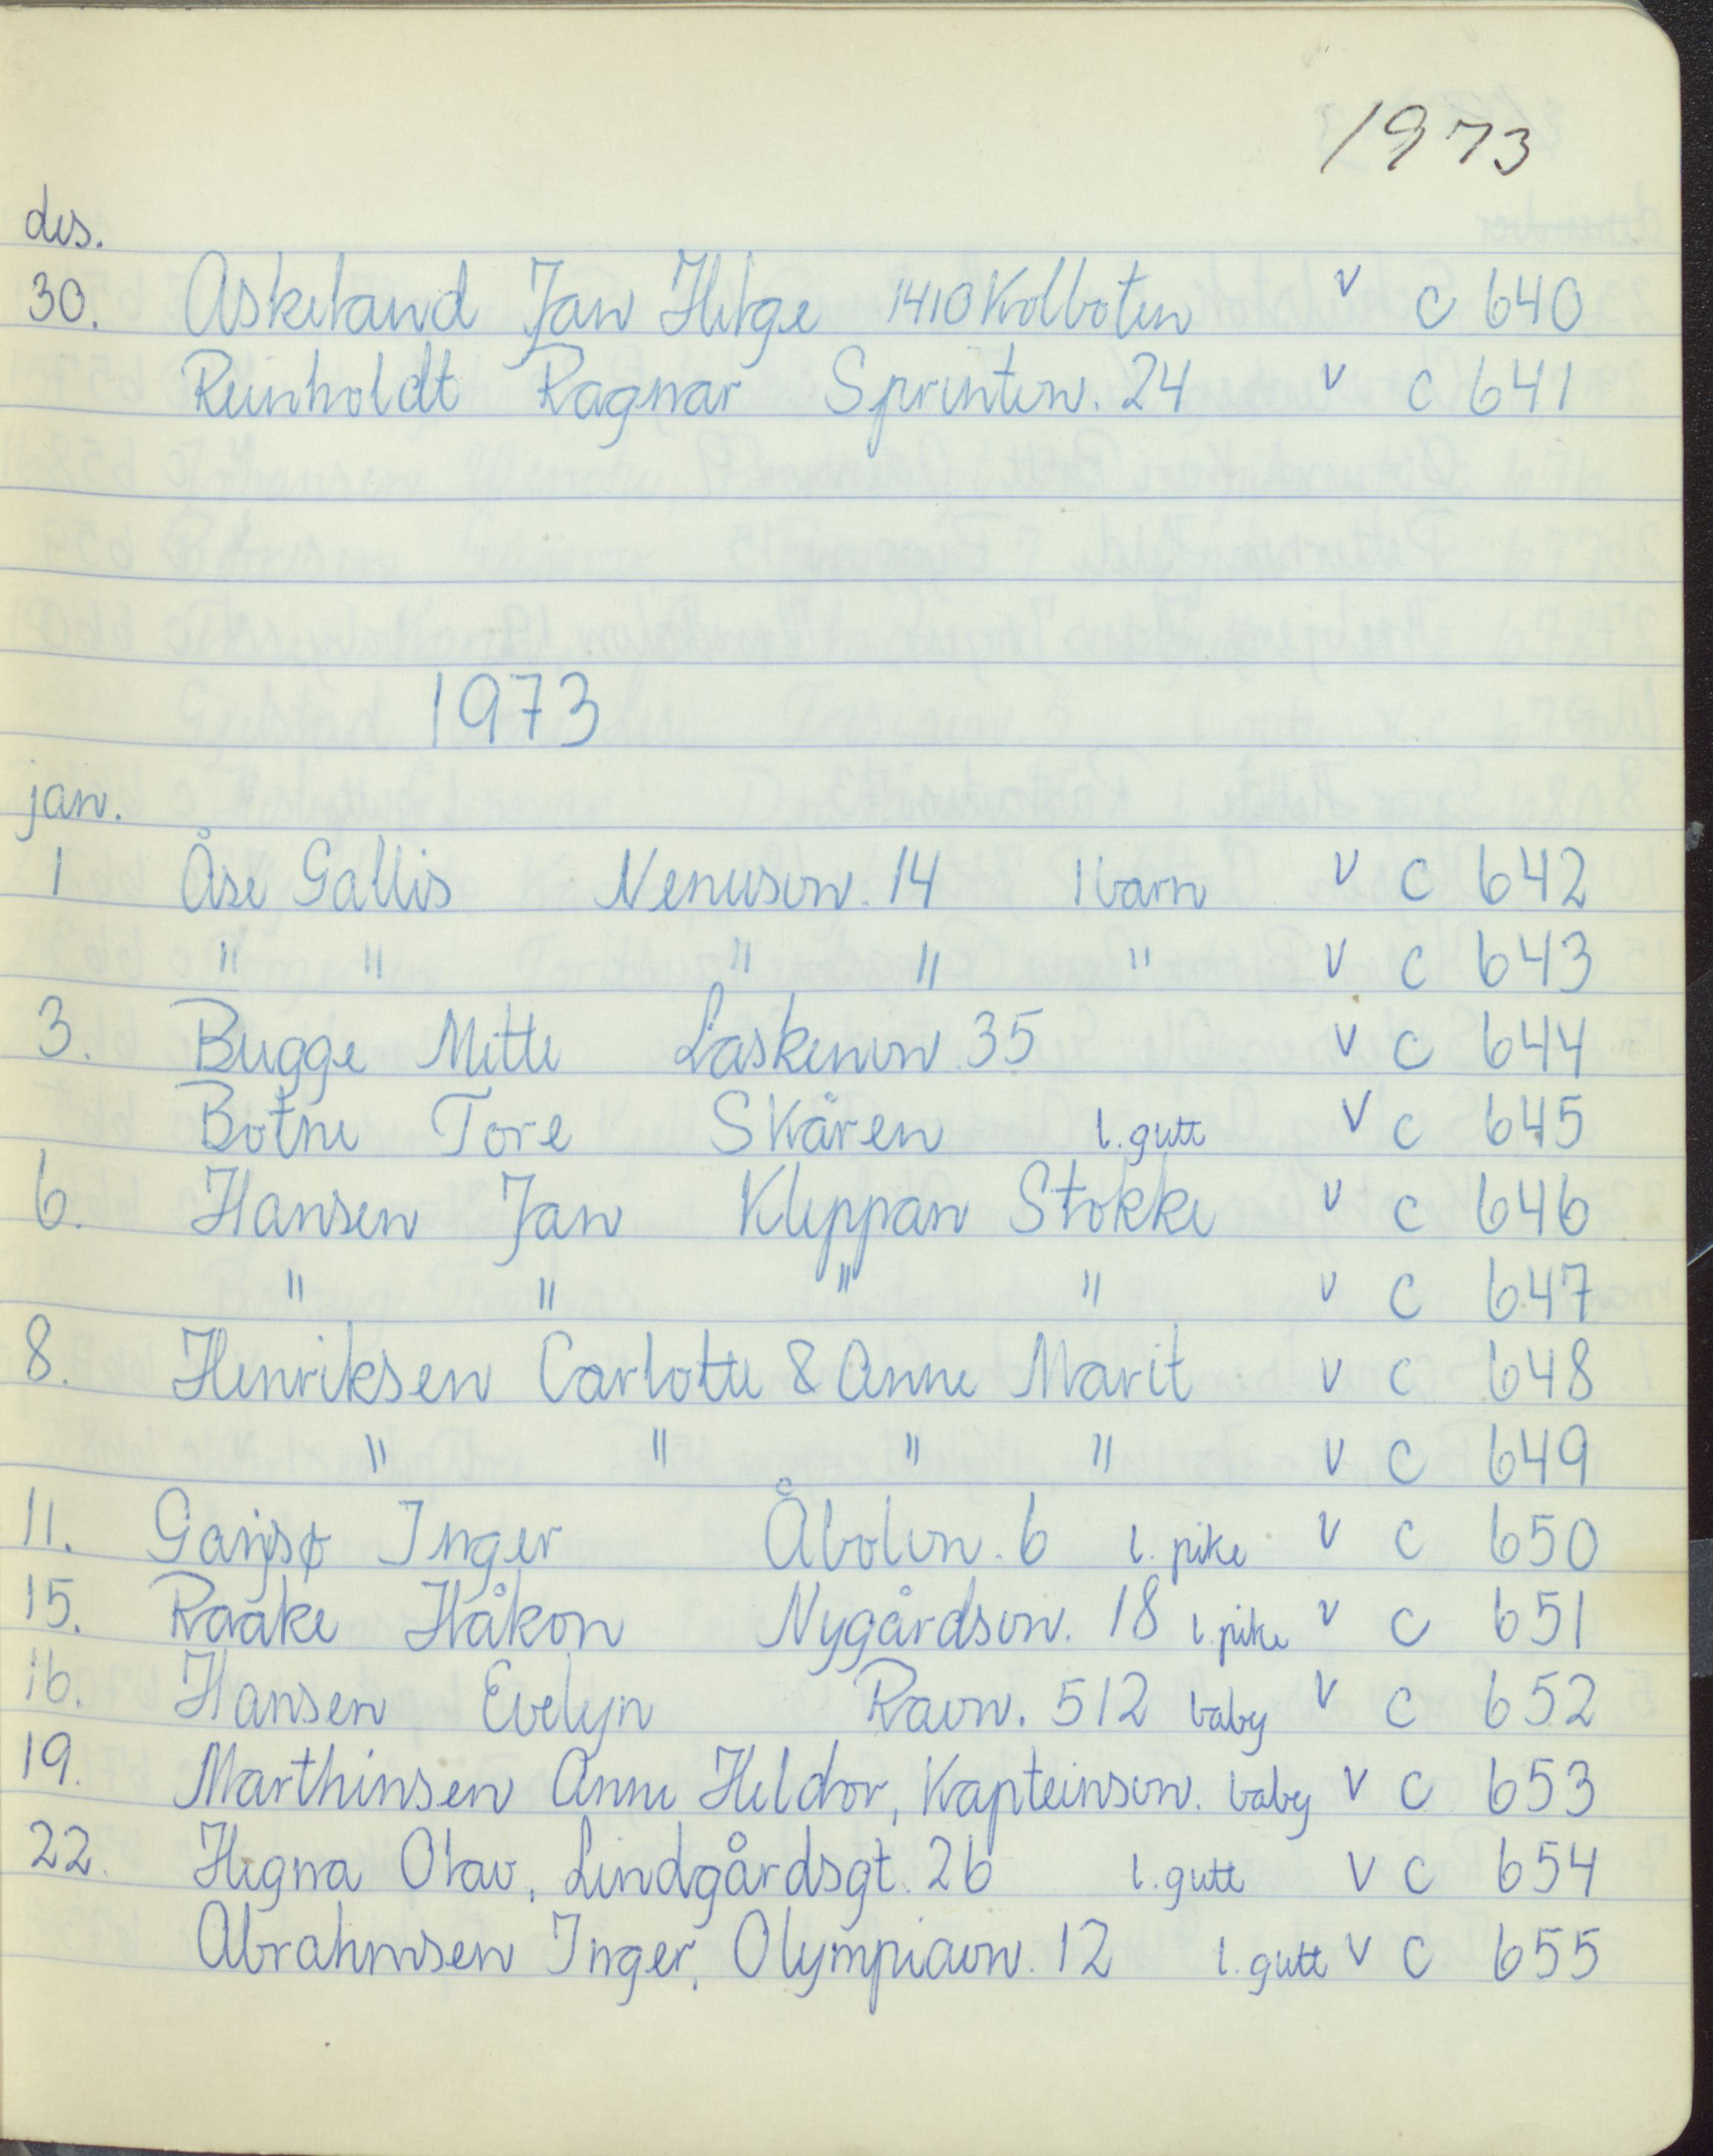 1973
des.
30. Askeland Jan Helge 1410 Kolboten v c 640
Reinholdt Ragnar Sprinten. 24 v c 641
1973
jan.
1 Åse Gallis Nenusvn. 14 1 barn v c 642
" " " " " v c 643
3. Bugge Mette Laskenvn 35 v c 644
Botne Tore Skåren l. gutt v c 645
6. Hansen Jan Kleppan Stokke v c 646
" " " " v c 647
8. Henriksen Carlotte & Anne Marit v c 648
" " " " v c 649
11. Inger Åbolvn. 6 l. pike v c 650
15. Raake Håkon Nygårdsvn. 18 l. pike v c 651
16. Hansen Evelyn Ravn. 512 baby v c 652
19. Marthinsen Anne Heldor, Kapteinsvn. baby v c 653
22. Hegna Olav, Lindgårdsgt. 26 l. gutt v c 654
Abrahmsen Inger, Olympiavn. 12 l. gutt v c 655